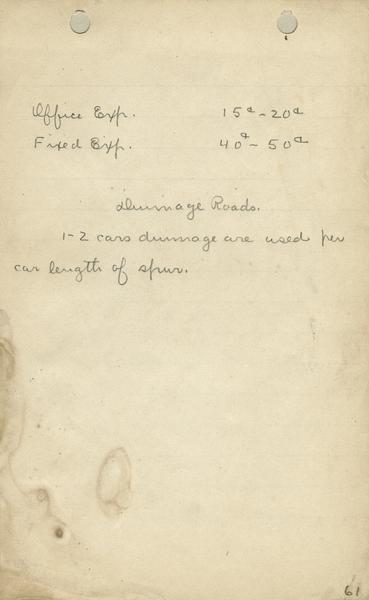 Office Exp. 15¢ - 20¢
Fixed Exp. 40¢ - 50¢
Dunnage Roads.
1-2 cars dunnage are used per
car length of spur.
61